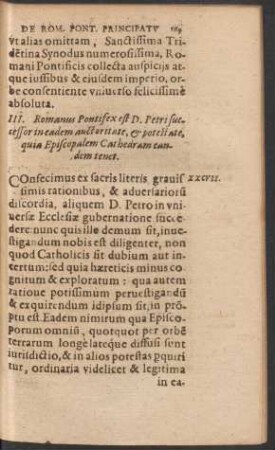 DE ROM. PONT. PRINCIPATV
vt alias omittam, Sanctissima Tri-
dētina Synodus numerosissima, Ro-
mani Pontificis collecta auspicijs at-
que iussibus & eiusdem imperio, or-
be consentiente vniuerso felicissimè
absoluta.
III. Romanus Pontifex est D. Petri suc-
cessor in eadem auctoritate, & potestate,
quia Episcopalem Cathedram ean-
dem tenet.
COnfecimus ex sacris literis grauis
XXCVII.
simis rationibus, & aduersariorū
discordia, aliquem D. Petro in vni-
uersæ Ecclesiæ gubernatione succe-
dere: nunc quis ille demum sit, inue-
stigandum nobis est diligenter, non
quod Catholicis sit dubium aut in
certum: sed quia hæreticis minus co-
gnitum & exploratum: qua autem
ratione potissimum peruestigandū
& exquirendum idipsum sit, in prō
ptu est. Eadem nimirum qua Episco-
porum omniū, quotquot per orbē
terrarum longè latèque diffusi sunt
iurisdictio, & in alios potestas pquiri
tur, ordinaria videlicet & legitima
in ea.